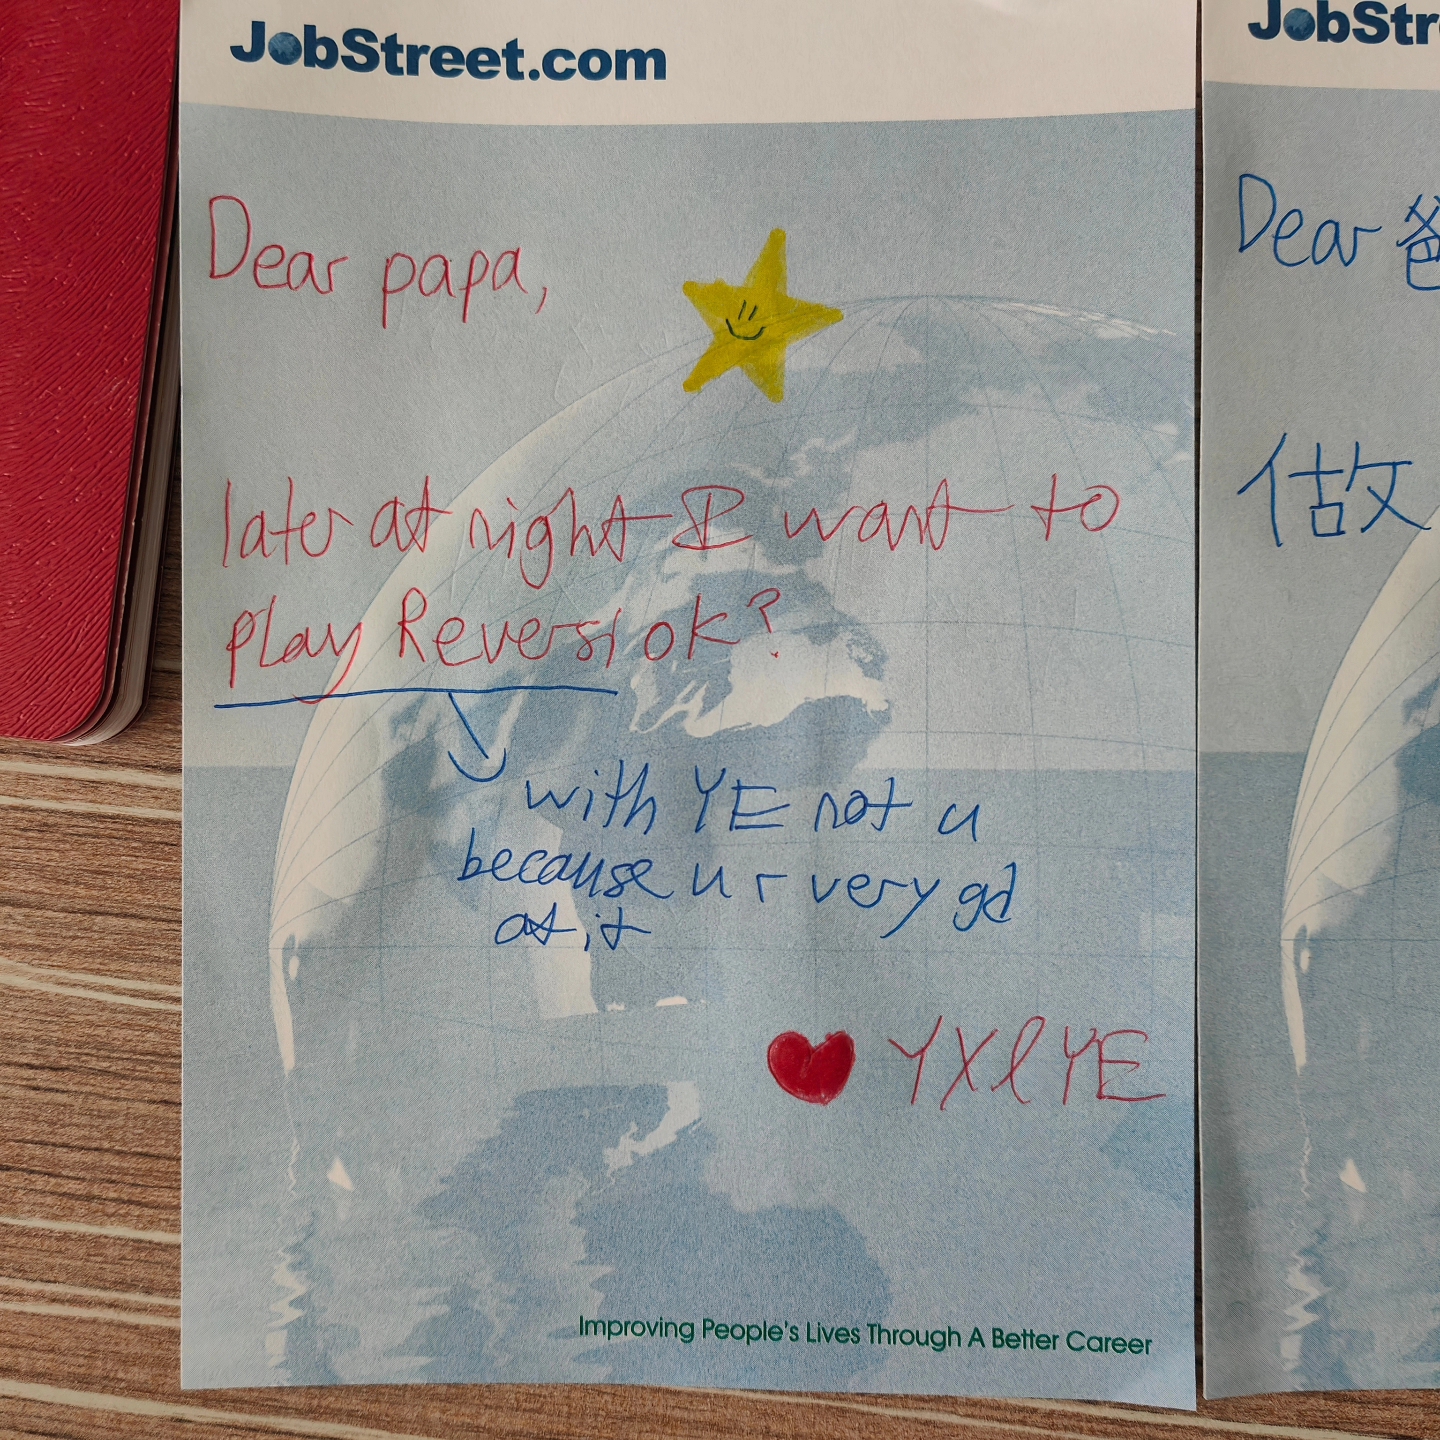 JobStreet.com
Dear papa,
later at night I want to
play Reversi ok?
with YE not u
because u r very gd
at it
YXlYE
Improving People's Lives Through A Better Career
JobStr
Dear 爸
做